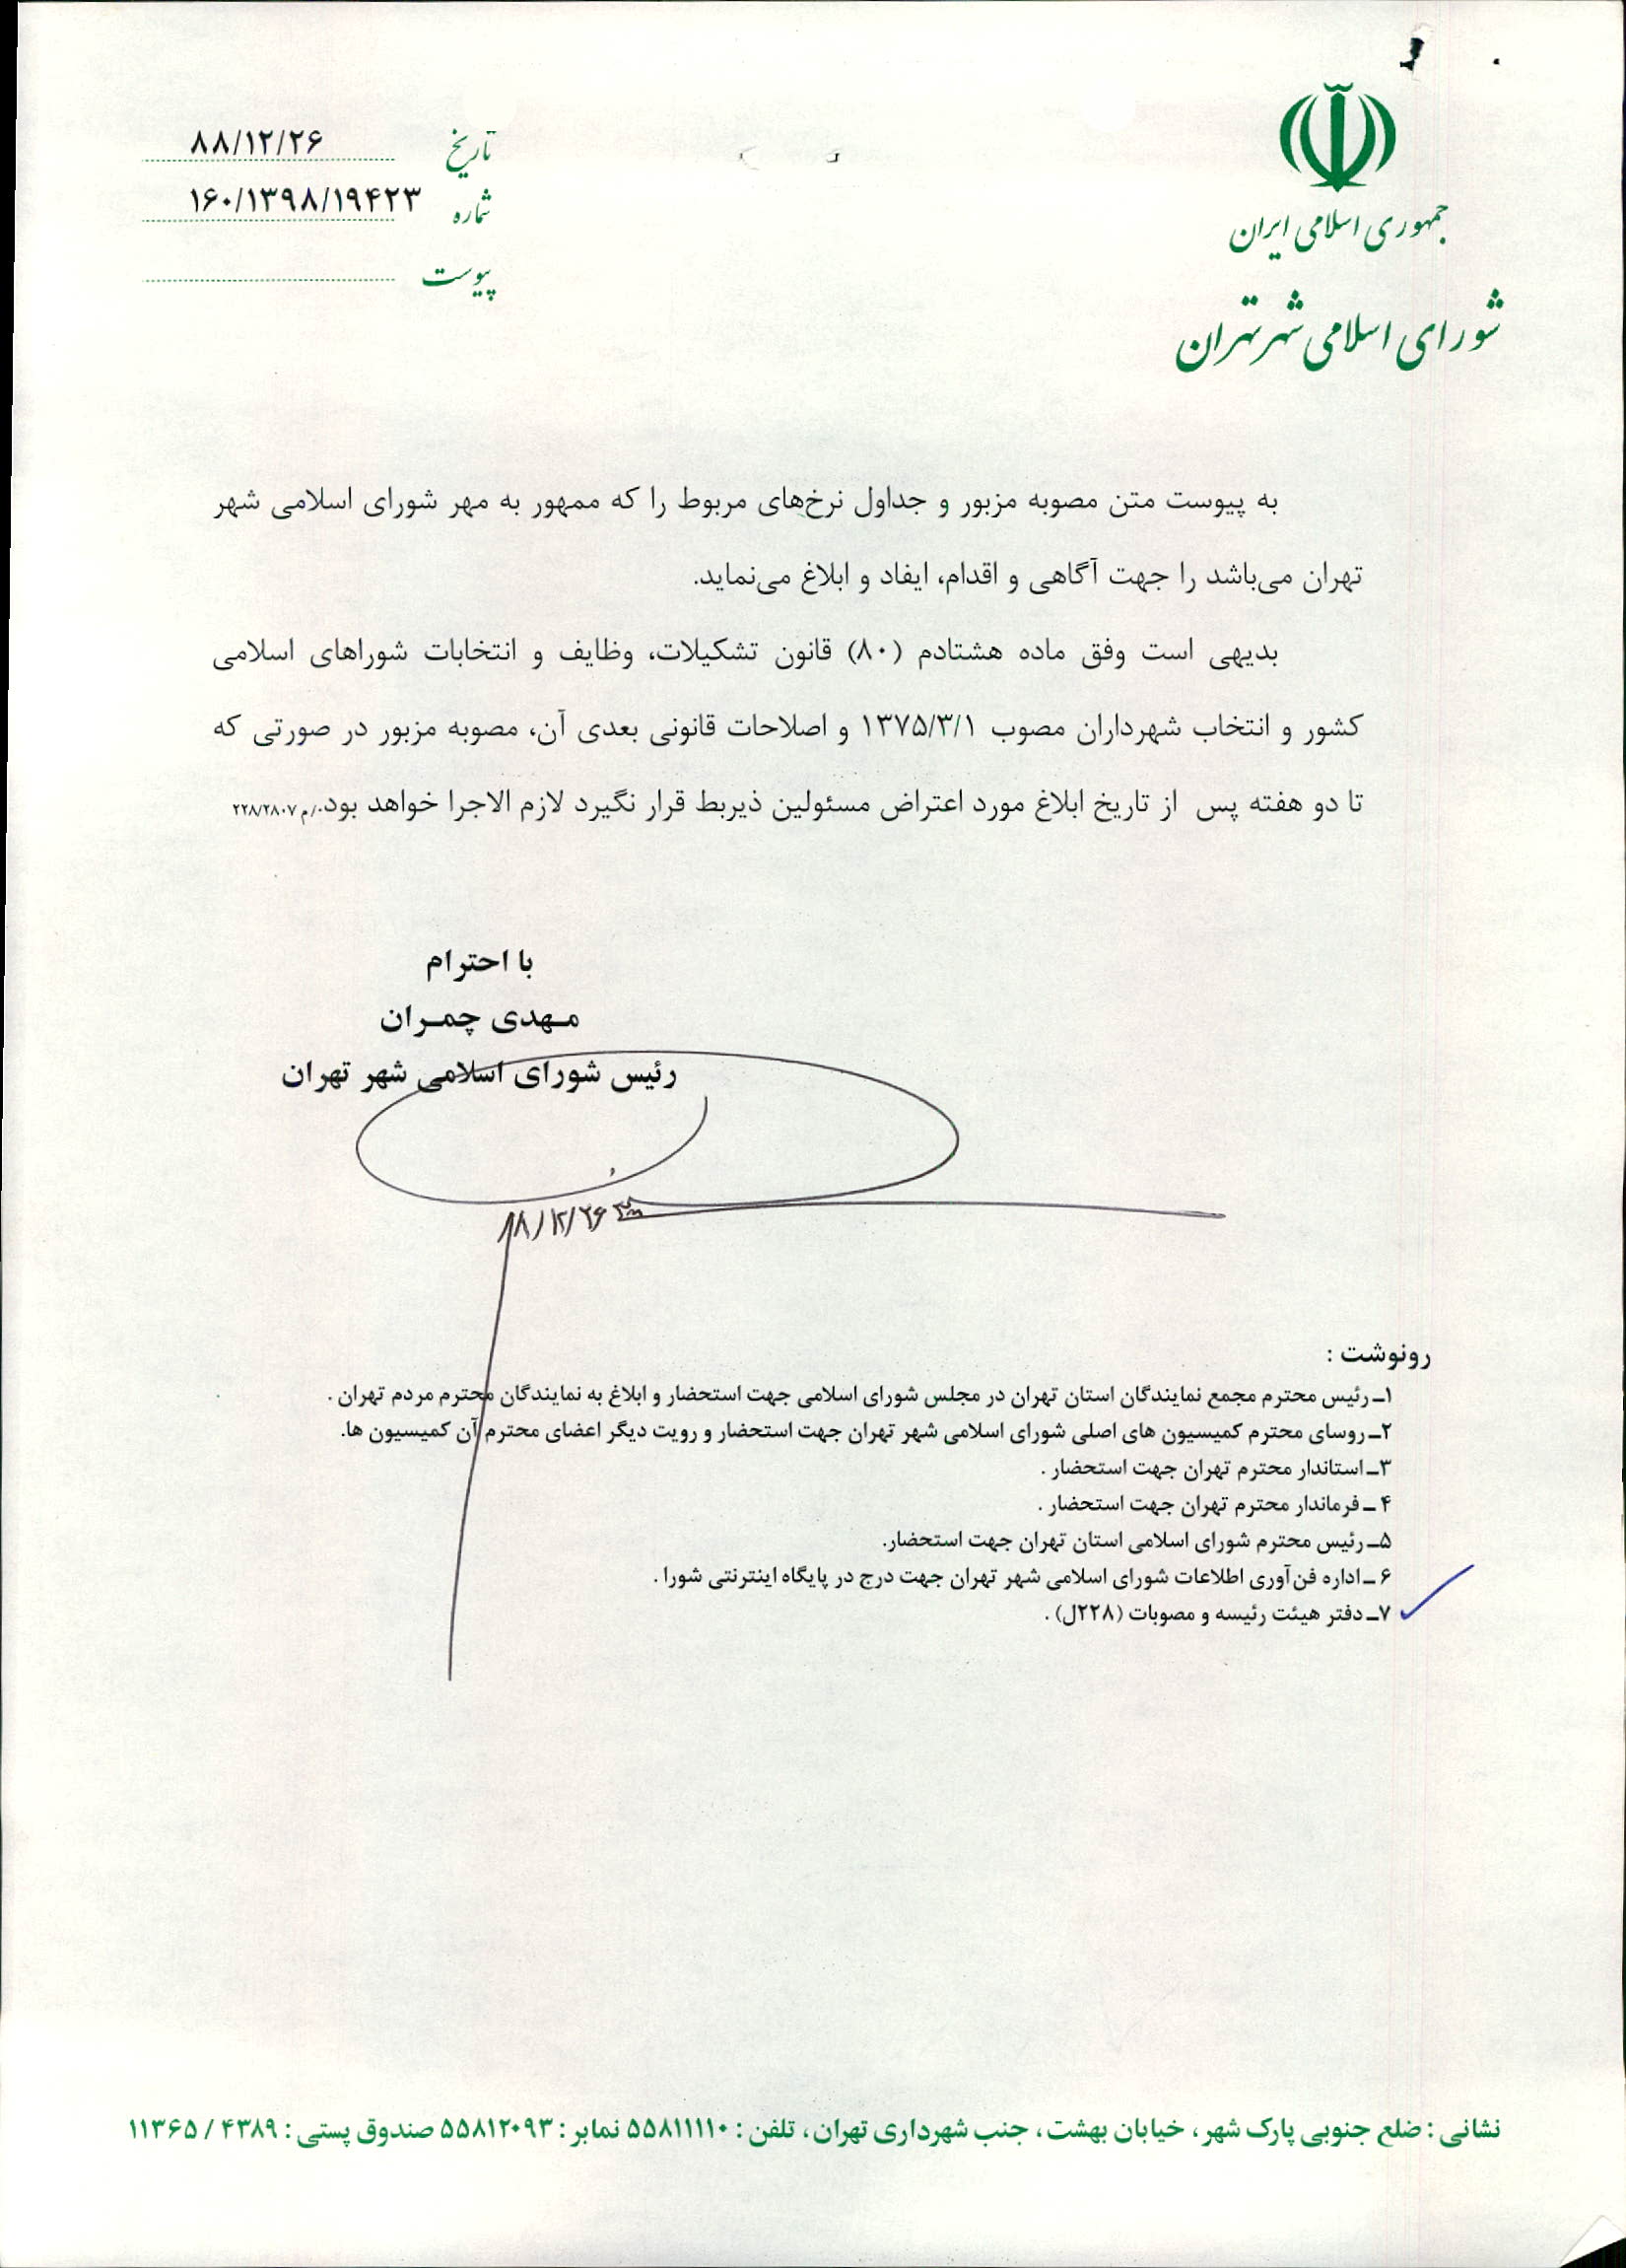 جمهوری اسلامی ایران
شورای اسلامی شهر تهران
تاریخ ۸۸/۱۲/۲۶
شماره ۱۶۰/۱۳۹۸/۱۹۴۲۳
پیوست
به پیوست متن مصوبه مزبور و جداول نرخ‌های مربوط را که ممهور به مهر شورای اسلامی شهر
تهران می‌باشد را جهت آگاهی و اقدام، ایفاد و ابلاغ می‌نماید.
بدیهی است وفق ماده هشتادم (۸۰) قانون تشکیلات، وظایف و انتخابات شوراهای اسلامی
کشور و انتخاب شهرداران مصوب ۱۳۷۵/۳/۱ و اصلاحات قانونی بعدی آن، مصوبه مزبور در صورتی که
تا دو هفته پس از تاریخ ابلاغ مورد اعتراض مسئولین ذیربط قرار نگیرد لازم الاجرا خواهد بود./م ۲۲۸/۲۸۰۷
با احترام
مهدی چمران
رئیس شورای اسلامی شهر تهران
۸۸/۱۲/۲۶
رونوشت :
۱ـ رئیس محترم مجمع نمایندگان استان تهران در مجلس شورای اسلامی جهت استحضار و ابلاغ به نمایندگان محترم مردم تهران .
۲ـ روسای محترم کمیسیون های اصلی شورای اسلامی شهر تهران جهت استحضار و رویت دیگر اعضای محترم آن کمیسیون ها.
۳ـ استاندار محترم تهران جهت استحضار .
۴ ـ فرماندار محترم تهران جهت استحضار .
۵ـ رئیس محترم شورای اسلامی استان تهران جهت استحضار.
۶ ـ اداره فن‌آوری اطلاعات شورای اسلامی شهر تهران جهت درج در پایگاه اینترنتی شورا .
۷ـ دفتر هیئت رئیسه و مصوبات (۲۲۸ل) .
نشانی : ضلع جنوبی پارک شهر ، خیابان بهشت ، جنب شهرداری تهران ، تلفن : ۵۵۸۱۱۱۱۰ نمابر : ۵۵۸۱۲۰۹۳ صندوق پستی : ۴۳۸۹ / ۱۱۳۶۵